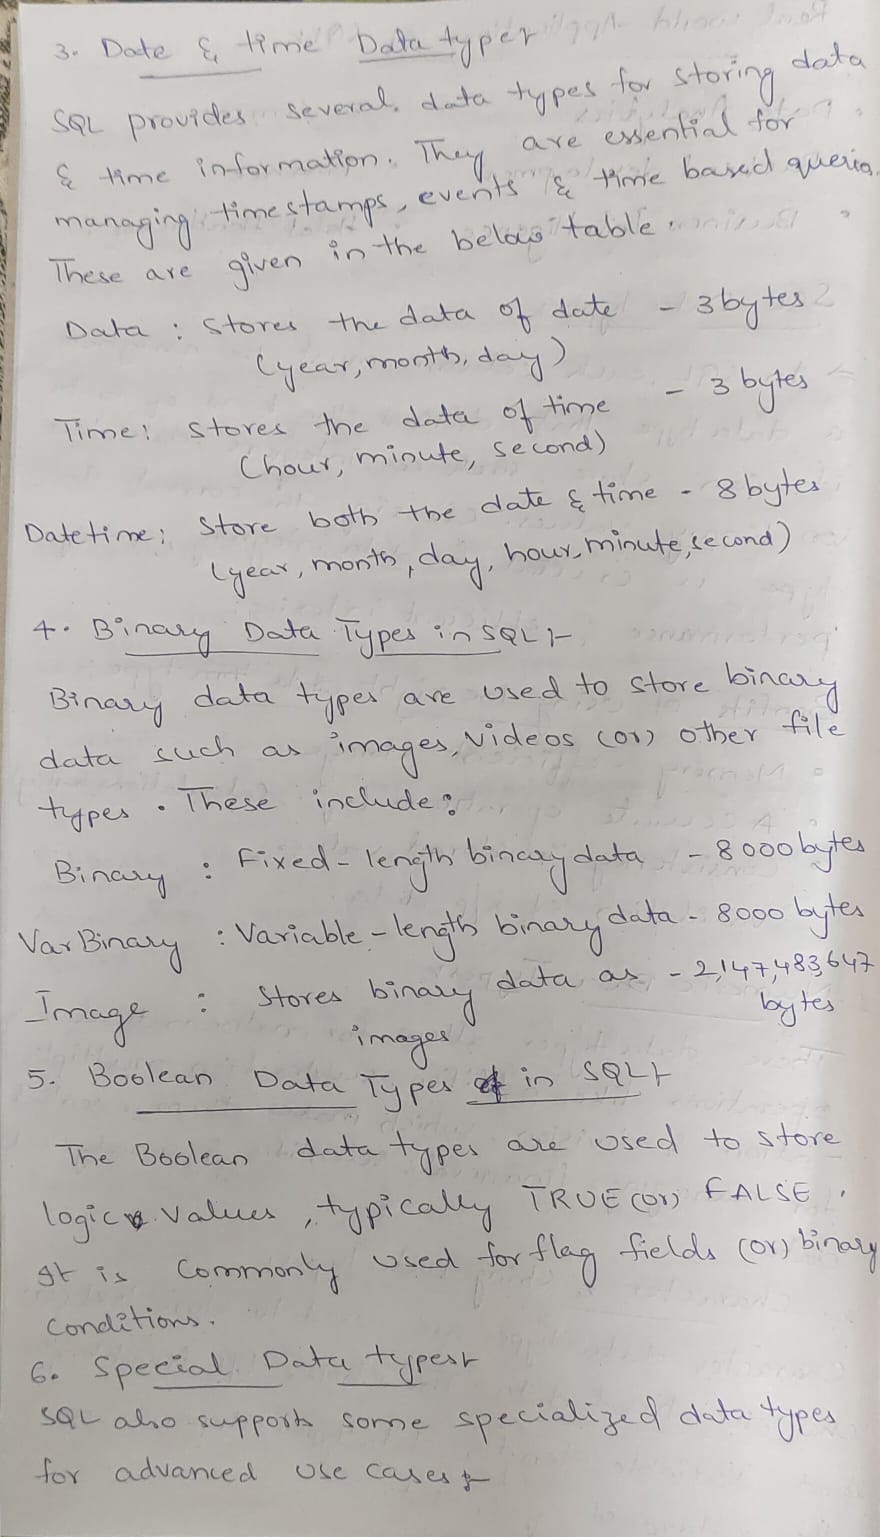 3. Date & time Data types
SQL provides several data types for storing data
& time information. They are essential for
managing timestamps, events & time based queries.
These are given in the below table.
Data : Stores the data of date - 3 bytes
(year, month, day)
Time: Stores the data of time - 3 bytes
(hour, minute, second)
Datetime: Store both the date & time - 8 bytes
(year, month, day, hour, minute, second)
4. Binary Data Types in SQL :-
Binary data types are used to store binary
data such as images, videos (or) other file
types. These include:
Binary : Fixed-length binary data - 8000 bytes
VarBinary : Variable-length binary data - 8000 bytes
Image : Stores binary data as - 2,147,483,647
images bytes
5. Boolean Data Types in SQL :-
The Boolean data types are used to store
logic values, typically TRUE (or) FALSE.
It is commonly used for flag fields (or) binary
conditions.
6. Special Data types :-
SQL also supports some specialized data types
for advanced use cases :-